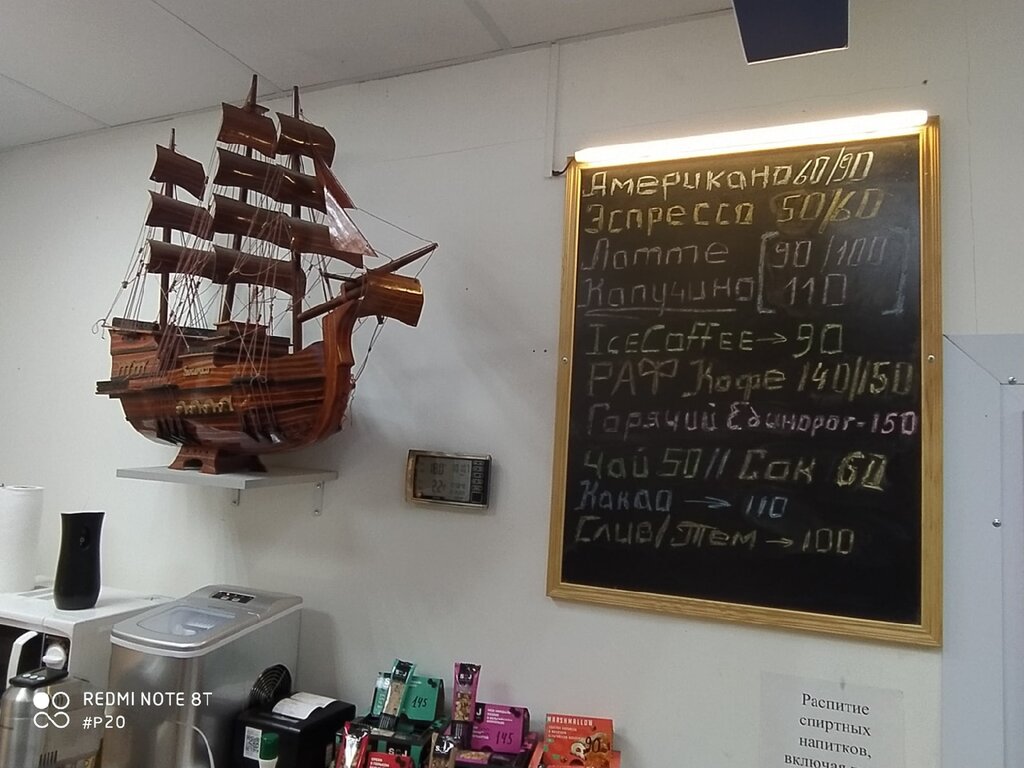 Американо 60/90
Эспрессо 50/60
Латте [90/100]
Капучино [110]
IceCoffee→90
РАФ Кофе 140//150
Горячий Единорог-150
Чай 50// Сок 60
Какао → 110
Слив/Тем→100
145
145
MARSHMALLOW
90
REDMI NOTE 8T
#P20
Распитие
спиртных
напитков,